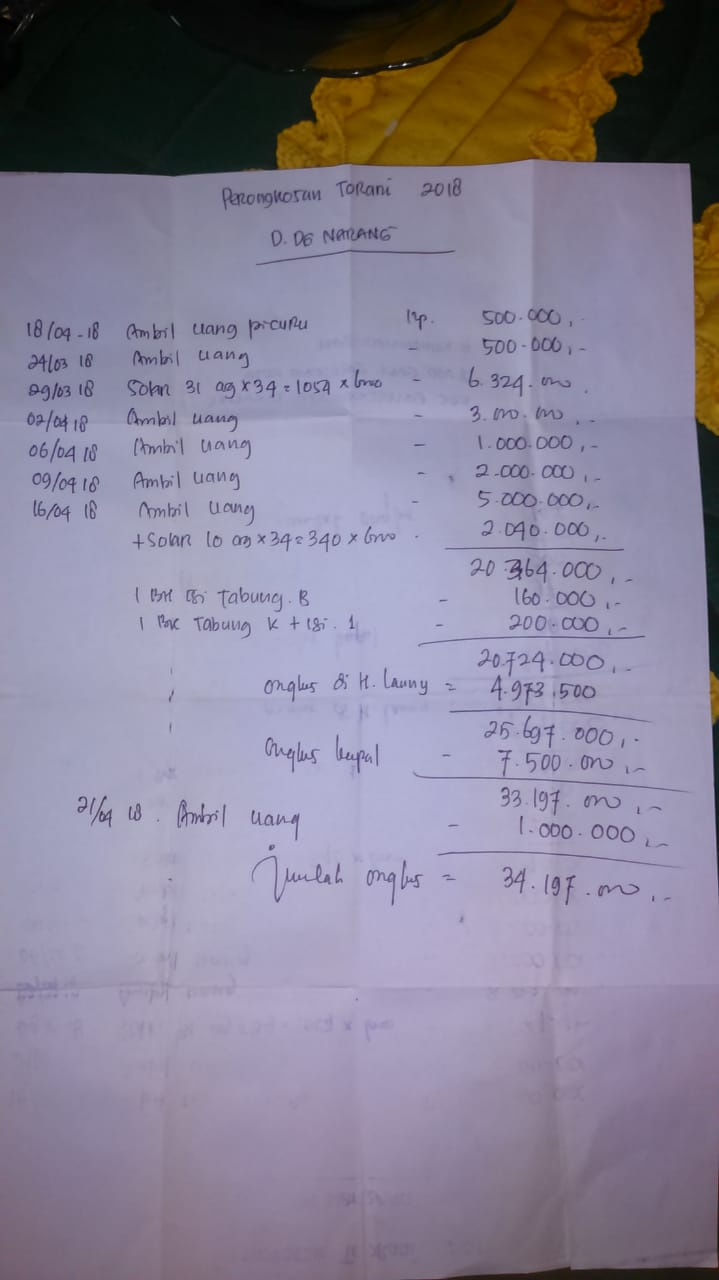 Perongkosan Torani 2018
D. DG NARANG
18/04-18 Ambil uang picuru Rp. 500.000,-
24/03 18 Ambil uang - 500.000,-
29/03 18 Solar 31 x 34 = 1054 x 6000 - 6.324.000
02/04 18 Ambil uang - 3.000.000,-
06/04 18 Ambil uang - 1.000.000,-
09/04 18 Ambil uang - 2.000.000,-
16/04 18 Ambil uang - 5.000.000,-
+ Solar 10 x 34 = 340 x 6000 - 2.040.000,-
20.364.000,-
1 Bh isi Tabung. B - 160.000,-
1 Tabung K + isi. 1 - 200.000,-
20.724.000,-
ongkos di H. Launy = 4.973.500
25.697.000,-
ongkos kapal - 7.500.000,-
33.197.000,-
21/04 18. Ambil uang - 1.000.000,-
Jumlah ongkos = 34.197.000,-